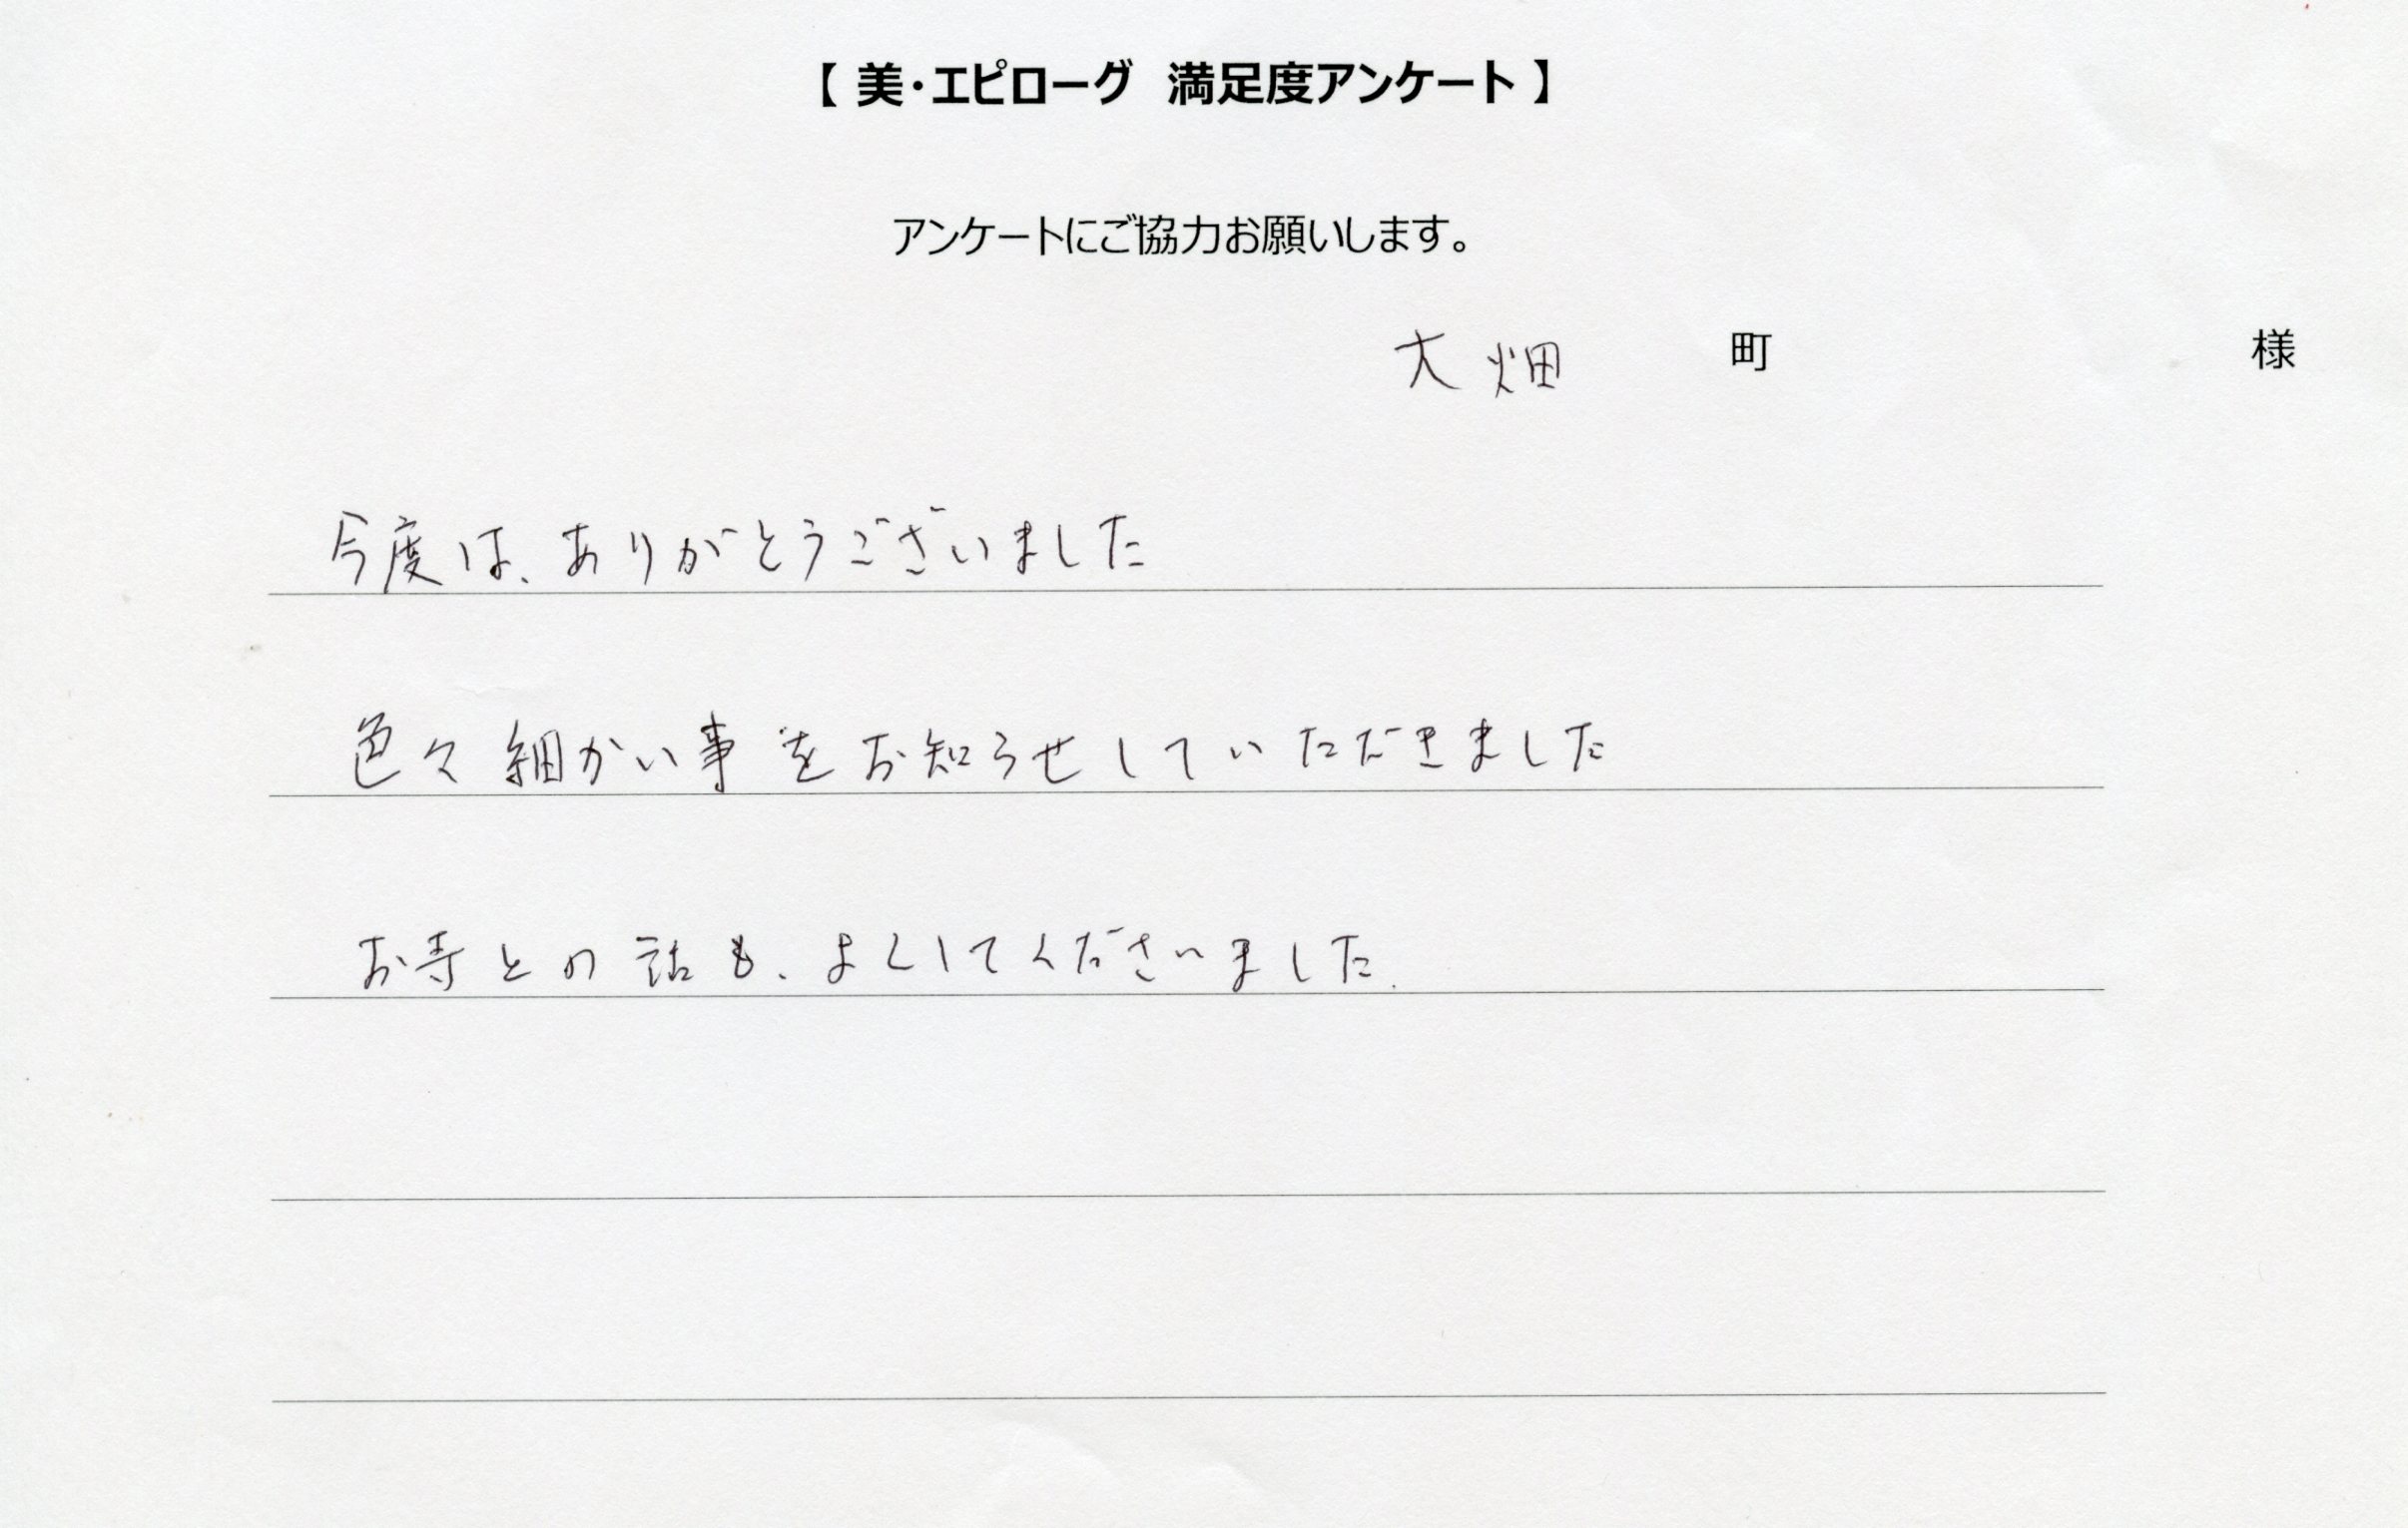 【 美・エピローグ　満足度アンケート 】
アンケートにご協力お願いします。
大畑　町　様
今度は、ありがとうございました
色々細かい事をお知らせしていただきました
お寺との話も、よくしてくださいました.